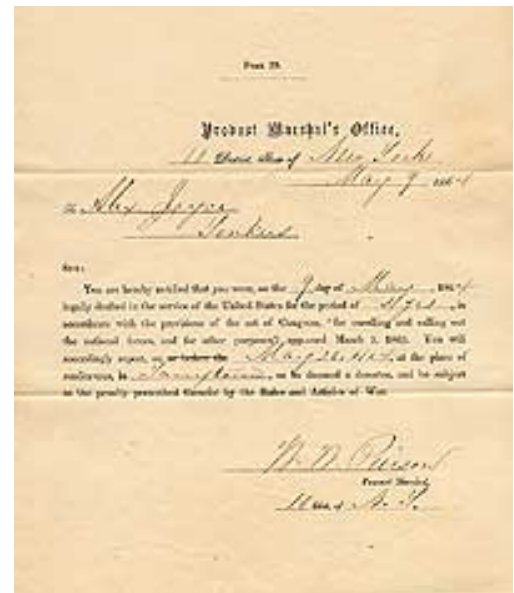 Form 39.
Provost Marshal's Office,
District State of New York
May 9 1864
To Alex Joyce
Yonkers
SIR:
You are hereby notified that you were, on the 9 day of May, 1864
legally drafted in the service of the United States for the period of yrs, in
accordance with the provisions of the act of Congress, "for enrolling and calling out
the national forces, and for other purposes," approved March 3, 1863. You will
accordingly report, on or before the May, at the place of
rendezvous, in Tarrytown, or be deemed a deserter, and be subject
to the penalty prescribed therefor by the Rules and Articles of War.
Provost Marshal,
N. Y.